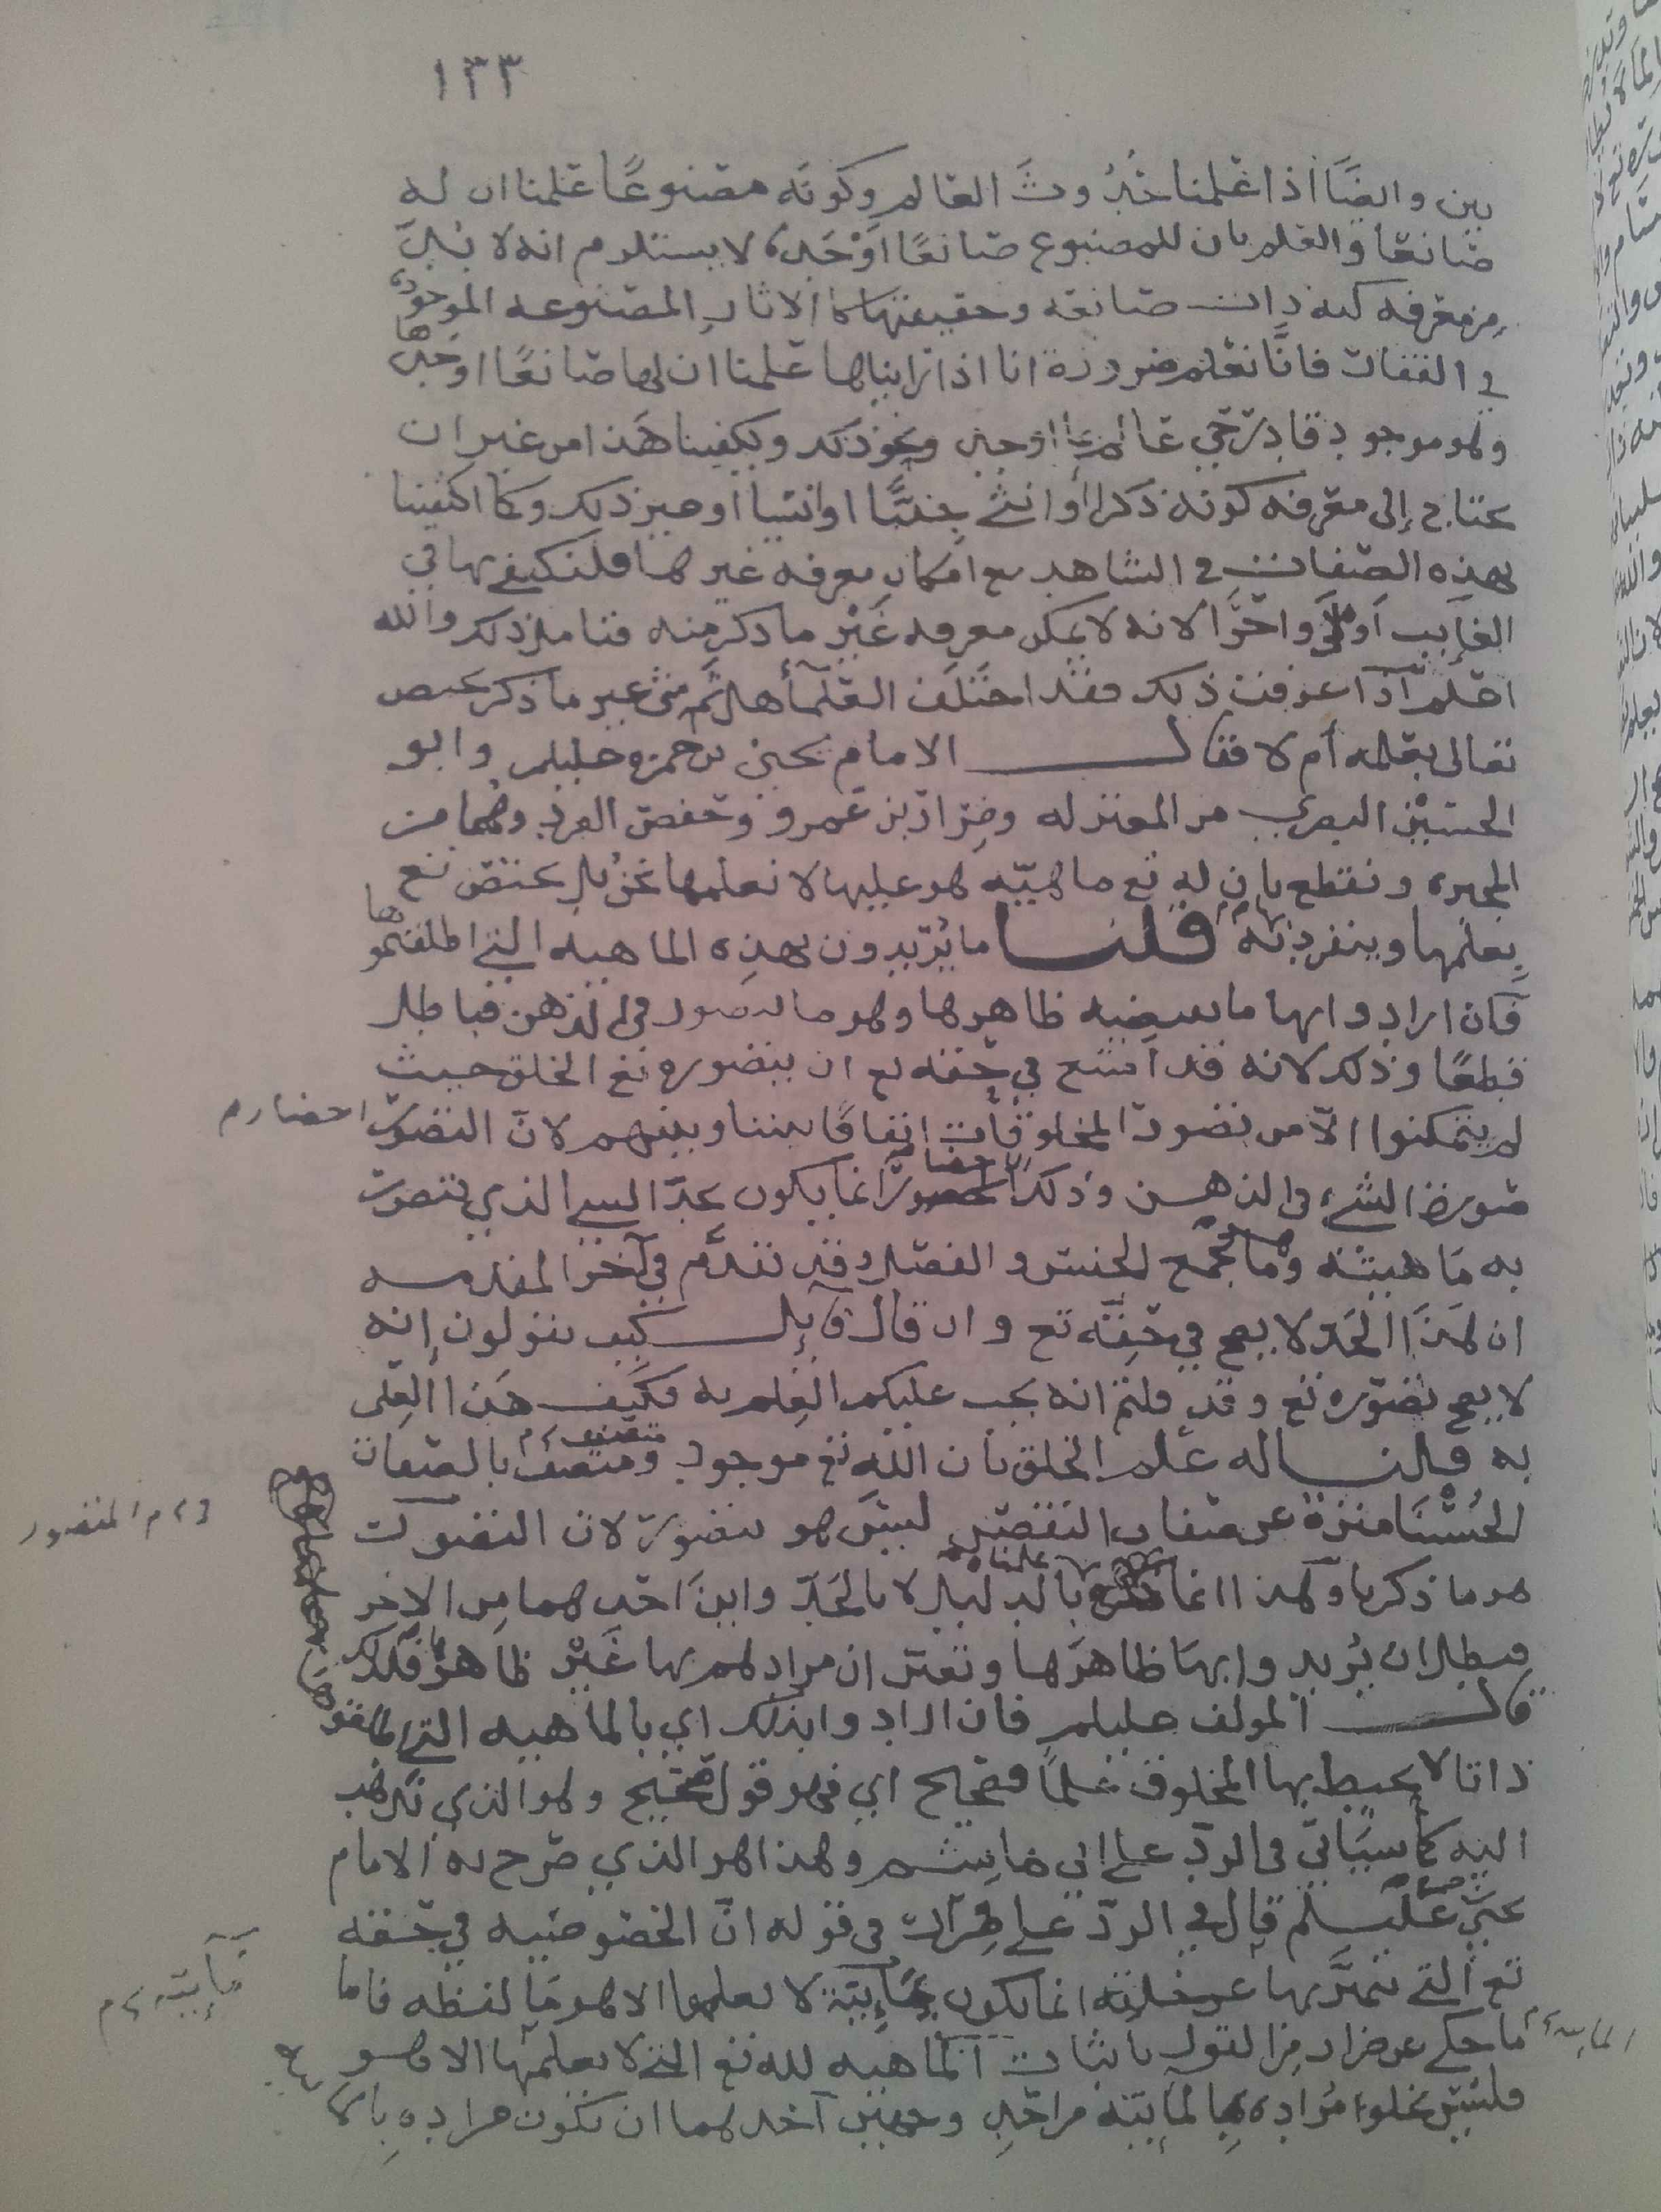 ١٣٣
بين وايضًا اذا علمنا حُدُوثَ العالم وكونه مصنوعًا علمنا ان له
صانعا والعلم بان للمصنوع صانعًا اوجده لا يستلزم انه لا بُدّ
من معرفه كنه ذات صانعه وحقيقتها كما الاثار المصنوعه الموجوده
في القفار فانَّا نعلم ضرورة انا اذا رايناها علمنا ان لها صانعًا اوجدها
وهو موجود قادر حي عالم اوجد ونحو ذلك ويكفينا هذا من غير ان
نحتاج إلى معرفه كونه ذكرا أو انثى جنيًّا او انسيا او غير ذلك وكما اكتفينا
بهذه الصفات في الشاهد مع امكان معرفه غيرها فلنكتفي بها في
الغايب اولى واحرا لانه لا يمكن معرفه غَيْر ما ذكر منه فتامل ذلك والله
اعلم اذا عرفت ذلك فقد اختلف العلمآ هل ثَمَّ شي غير ما ذكر يختص
تعالى بعلمه أم لا فقال الامام يحيى بن حمزه عليلم وابو
الحسين البصري من المعتزله وضرار بن عمرو وحفص الفرد وهما من
المجبره ونقطع بان له تع ماهيّه هو عليها لا نعلمها نحن بل يختص تع
بعلمها وينفرد به قلنا ما يُريدون بهذه الماهيه التي اطلقتموها
فان ارادوا بها ما يقتضيه ظاهرها وهو ما يتصور في الذهن فباطل
قطعًا وذلك لانه قد امتنع في حقه تع ان يتصوره تع الخلق حيث
لم يتمكنوا الا من تصور المخلوقات اتفاقًا بيننا وبينهم لانّ التصور احضار م
صورة الشيء في الذهن وذلك احضار انما يكون بحدّ الشي الذي يتصور
به ماهيته وما يجمع الجنس والفصل وقد تقدم في آخر المقدمه
ان هَذَا الحَد لا يصح في حقِّه تع وان قال قايل كيف تقولون إنه
لا يصح تصوّره تع وقد قلتم انه يجب عليكم العِلم به فكيف هذا العِلم
به قلنا له علم الخلق بان الله تع موجود ومتصف بالصفات
الحُسْنَا منزه عن صفات النقص ليسَ هو بتصوّر لان التصور
و م المتصور
هو ما ذكرنا وهذا انما علمناه بالدليل لا بالحَدّ واينَ احدهما من الاخر
فبطل ان يُريدوا بها ظاهرَها وتعيّن ان مرادهم بها غَيْر ظاهرها فلذلك
قال المولف عليلم فان ارادوا بذلك اي بالماهيه التي اطلقوها
ذاتا لا يحيط بها المخلوق عِلمًا فصحيح اي فهو قول صحيح وهو الذي نذهب
اليه كما سيَاتي في الردّ على ابي هاشم وهذا هو الذي صَرح به الامام
يحيى عليلم قال في الردّ على ضرار في قوله انّ الخصوصيه في حقه
تع التي تميَّز بها عن خلقه انما تكون بمَآيِيّة لا يعلمها الا هو مَا لفظه فاما
مآييّه م
ما حكي عن ضرار من القول باثبات الماهيه لله تع التي لا يعلمها الا هو
الماييه م
فليس يخلوا مُراده بالمآييّه من احد وجهين آحدهما ان تكون مراده بالما